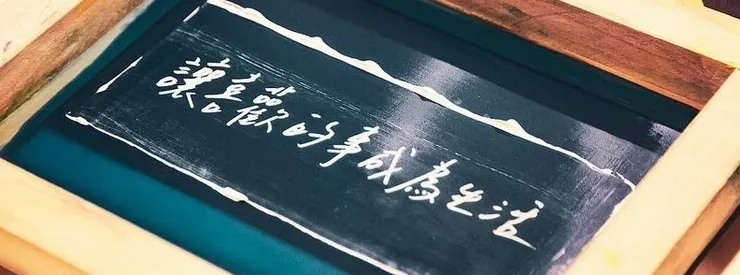 讓喜歡的事成為生活